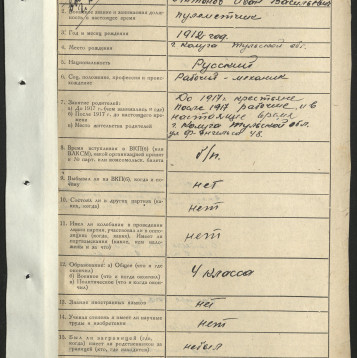 Иван Васильевич
2. звание и занимаемая долж-
ность в настоящее время
пулеметчик
3. Год и месяц рождения
1912 год.
4. Место рождения
г. Калуга Тульской обл.
5. Национальность
Русский
6. Соц. положение, профессия и проис-
хождение
Рабочий - механик
7. Занятие родителей:
а) До 1917 г. (чем занимались и где)
б) После 1917 г. до настоящего
времени
в) Место жительства родителей
До 1917г. крестьяне
после 1917 рабочие, и в
настоящее время
г. Калуга Тульской обл.
ул. Фр. Энгельса 46.
8. Время вступления в ВКП(б) или
ВЛКСМ, какой организацией принят
и № парт. или комсомольск. билета
б/п.
9. Выбывал ли из ВКП(б), когда и по-
чему
нет
10. Состоял ли в других партиях (ка-
ких, когда)
нет
11. Имел ли колебания в проведении
линии партии, участвовал ли в оп-
позициях (когда, каких). Имеет ли
партвзыскания (какие, кем нало-
жены и за что)
нет
12. Образование: а) Общее (что и где
окончил)
б) Военное (что и когда окончил)
в) Политическое (что и когда окон-
чил)
4 класса
13. Знание иностранных языков
нет
14. Ученая степень и имеет ли научные
труды и изобретения
нет
15. Был ли заграницей (где,
когда) имеет ли родственников за
границей (кто, где находится)
не был